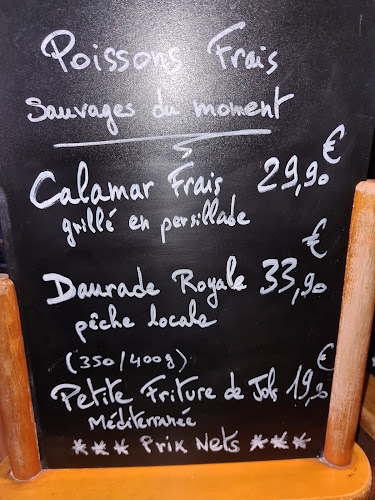 Poissons Frais
Sauvages du moment
Calamar Frais 29,90 €
grillé en persillade
Daurade Royale 33,90 €
pêche locale
(350/400g)
Petite Friture de Jols 19,90 €
Méditerranée
*** Prix Nets ***